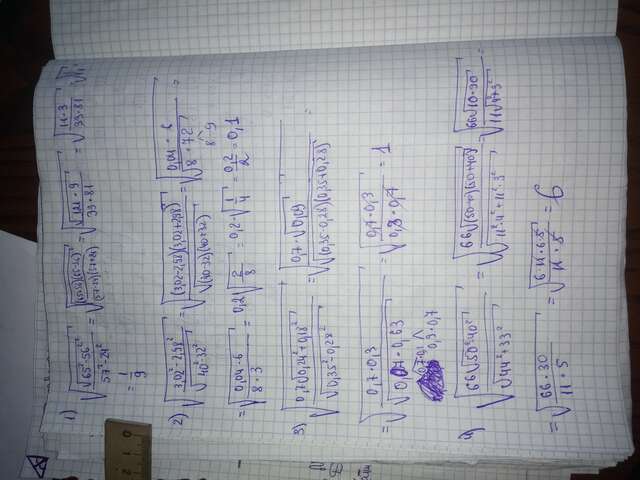 1) √(√(65²-56²)/(57²-24²)) = √(√((65-56)(65+56))/((57-24)(57+24))) = √(√(121·9)/(33·81)) = √(11·3/(33·81))
= 1/9
2) √(√(3,02²-2,98²)/√(40²-32²)) = √(√((3,02-2,98)(3,02+2,98))/√((40-32)(40+32))) = √(√(0,04·6)/√(8·72)) =
8 9
= √(√(0,04·6)/(8·3)) = 0,2√(2/8) = 0,2·√(1/4) = 0,2/2 = 0,1
3) √(0,7√(0,24²+0,18²)/√(0,35²-0,28²)) = √(0,7·√0,09/√((0,35-0,28)(0,35+0,28))) =
= √(0,7·0,3/√(0,07·0,63)) = √(0,7·0,3/(0,3·0,7)) = 1
0,7·0,1
0,9·0,7
4) √(66√(50²-40²)/√(44²+33²)) = √(66√((50-40)(50+40))/√(11²·4²+11²·3²)) = √(66√(10·90)/(11√(4²+3²))) =
= √(66·30/(11·5)) = √(6·11·6·5/(11·5)) = 6